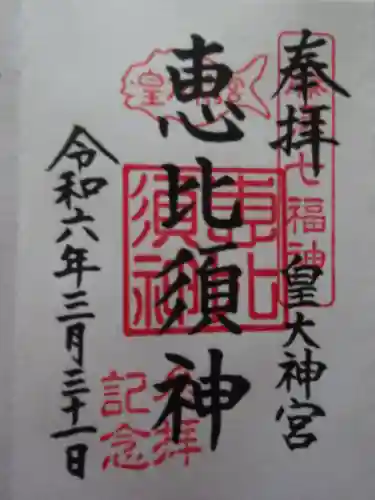 奉拝
藤沢七福神
皇大神宮
恵比須神
皇大神宮
恵比須神
参拝
記念
令和六年三月三十一日